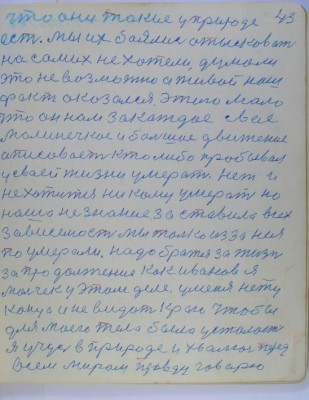 что они такие у природе 43
ест. мы их баялис отысковат
на самих не хотели, думали
это не возможно а живой наш
факт оказался, этого мало
что он нам за каждое свае
малинечкое и большие движение
описовает кто либо пробывал
у своей жизни умерат нет и
не хотится ни кому умерат но
наше не знание заставила всех
зависемост мы толко из за нея
поумерали. надо братся за жизн
за продолжения как Иванов я
молчек у этом деле. уменя нету
конца и не видат краю чтобы
для моего тела было усталост
я учус в природе и хвалюс пред
всем миром правду говорю